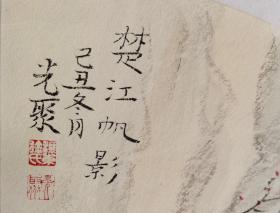 楚江帆影
己丑冬月
光聚